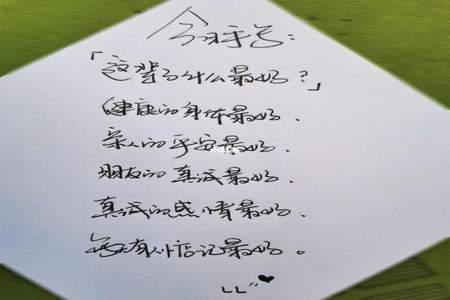 今日手写：
「这辈子什么最好？」
健康的身体最好、
亲人的平安最好、
朋友的真诚最好、
真诚的感情最好、
每天有人惦记最好。
LL"